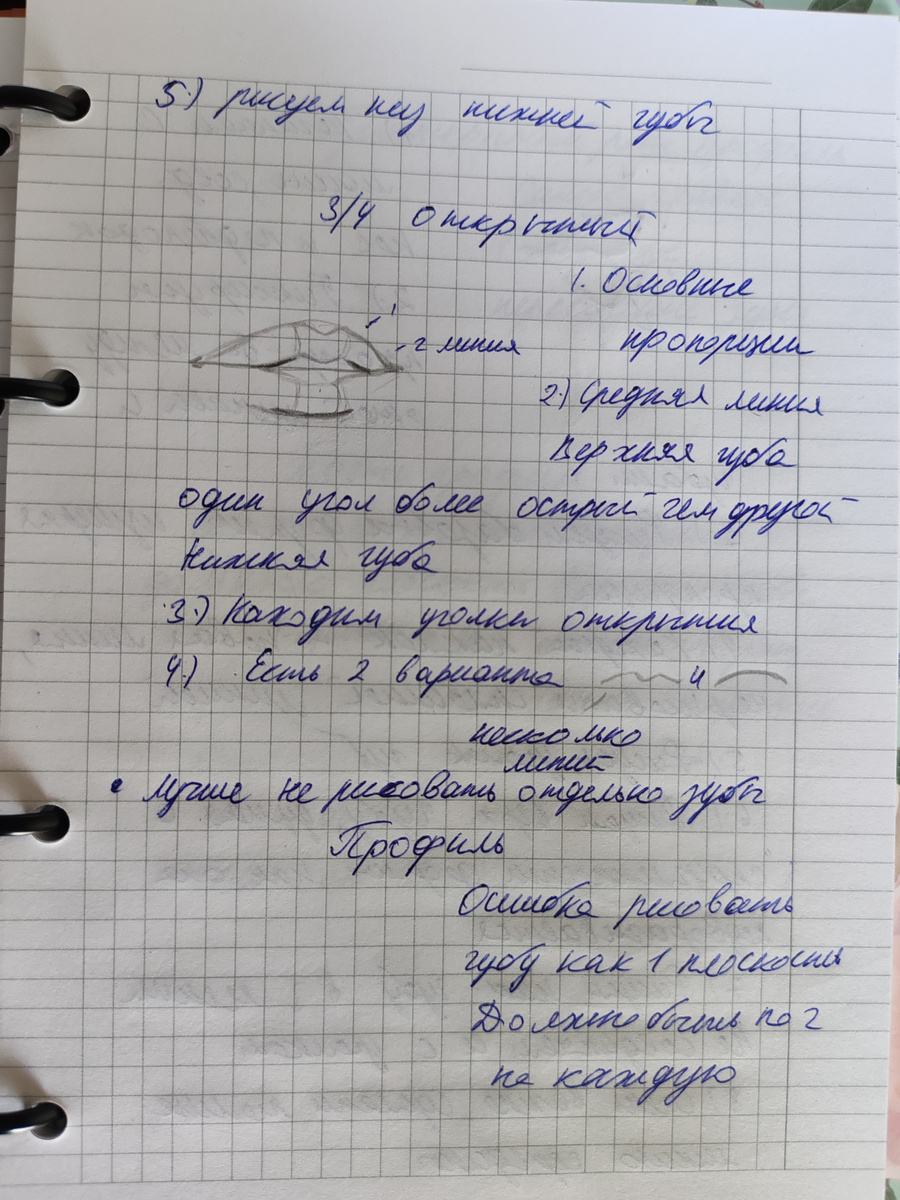 5.) рисуем низ нижней губы
3/4 открытый
1. Основные
1
2 линия
пропорции
2.) Средняя линия
Верхняя губа
один угол более острый чем другой
Нижняя губа
3.) Находим уголки открытия
4.) Есть 2 варианта и
несколько
линий
• Лучше не рисовать отдельно зубы
Профиль
Ошибка рисовать
губу как 1 плоскость
Должно быть по 2
на каждую